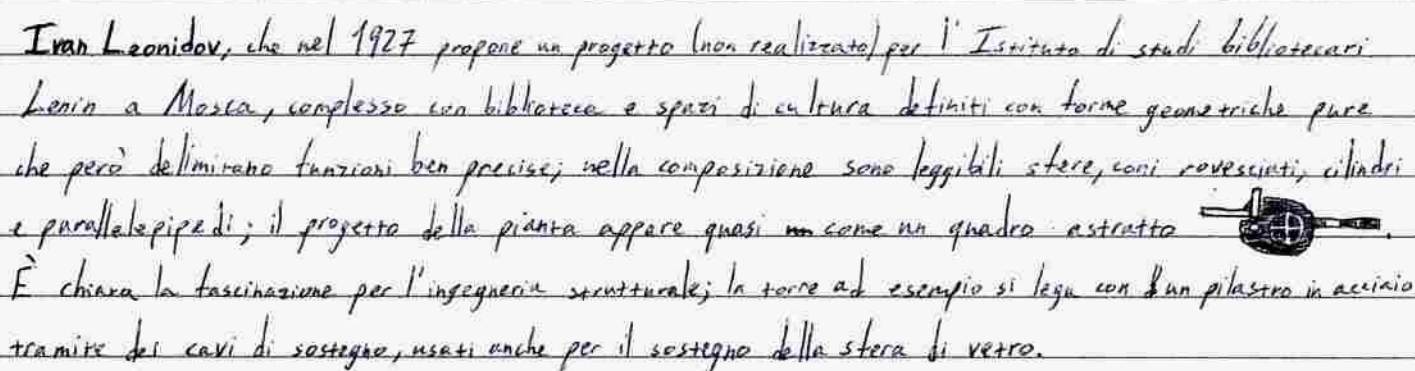 Ivan Leonidov, che nel 1927 propone un progetto (non realizzato) per l'Istituto di studi bibliotecari
Lenin a Mosca, complesso con biblioteca e spazi di cultura definiti con forme geometriche pure
che però delimitano funzioni ben precise; nella composizione sono leggibili sfere, coni rovesciati, cilindri
e parallelepipedi; il progetto della pianta appare quasi come un quadro astratto.
È chiara la fascinazione per l'ingegneria strutturale; la torre ad esempio si lega con un pilastro in acciaio
tramite dei cavi di sostegno, usati anche per il sostegno della sfera di vetro.